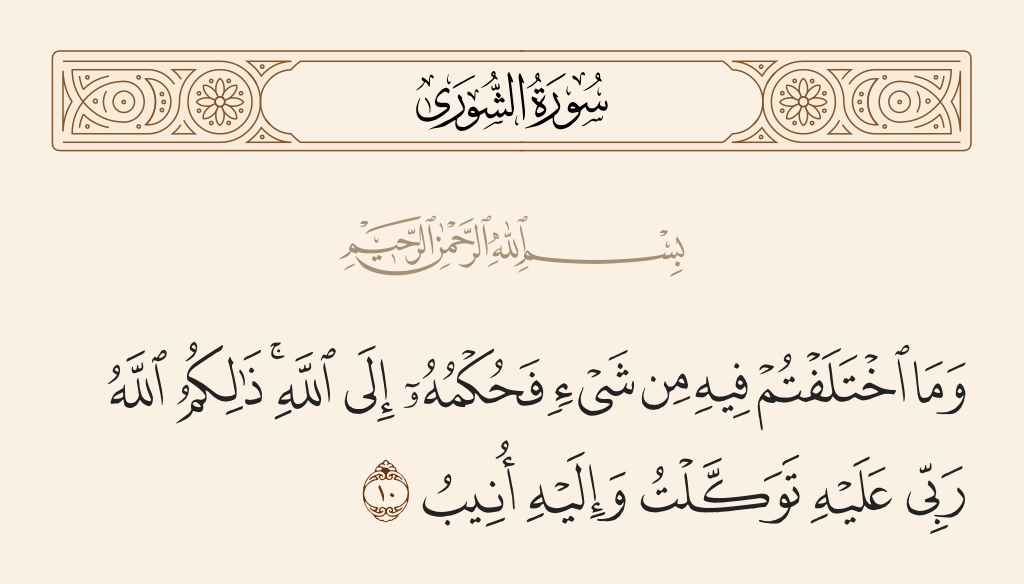 سُورَةُ الشُّورَىٰ
بِسْمِ ٱللَّهِ ٱلرَّحْمَٰنِ ٱلرَّحِيمِ
وَمَا ٱخْتَلَفْتُمْ فِيهِ مِن شَىْءٍ فَحُكْمُهُۥٓ إِلَى ٱللَّهِ ۚ ذَٰلِكُمُ ٱللَّهُ
رَبِّى عَلَيْهِ تَوَكَّلْتُ وَإِلَيْهِ أُنِيبُ ١٠